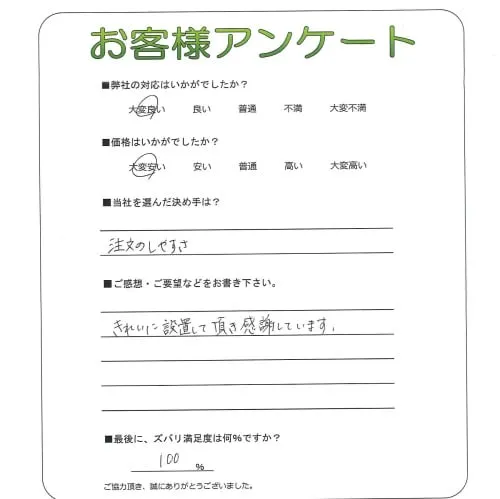 お客様アンケート
■弊社の対応はいかがでしたか？
大変良い 良い 普通 不満 大変不満
■価格はいかがでしたか？
大変安い 安い 普通 高い 大変高い
■当社を選んだ決め手は？
注文のしやすさ
■ご感想・ご要望などをお書き下さい。
きれいに設置して頂き感謝しています。
■最後に、ズバリ満足度は何%ですか？
100 %
ご協力頂き、誠にありがとうございました。